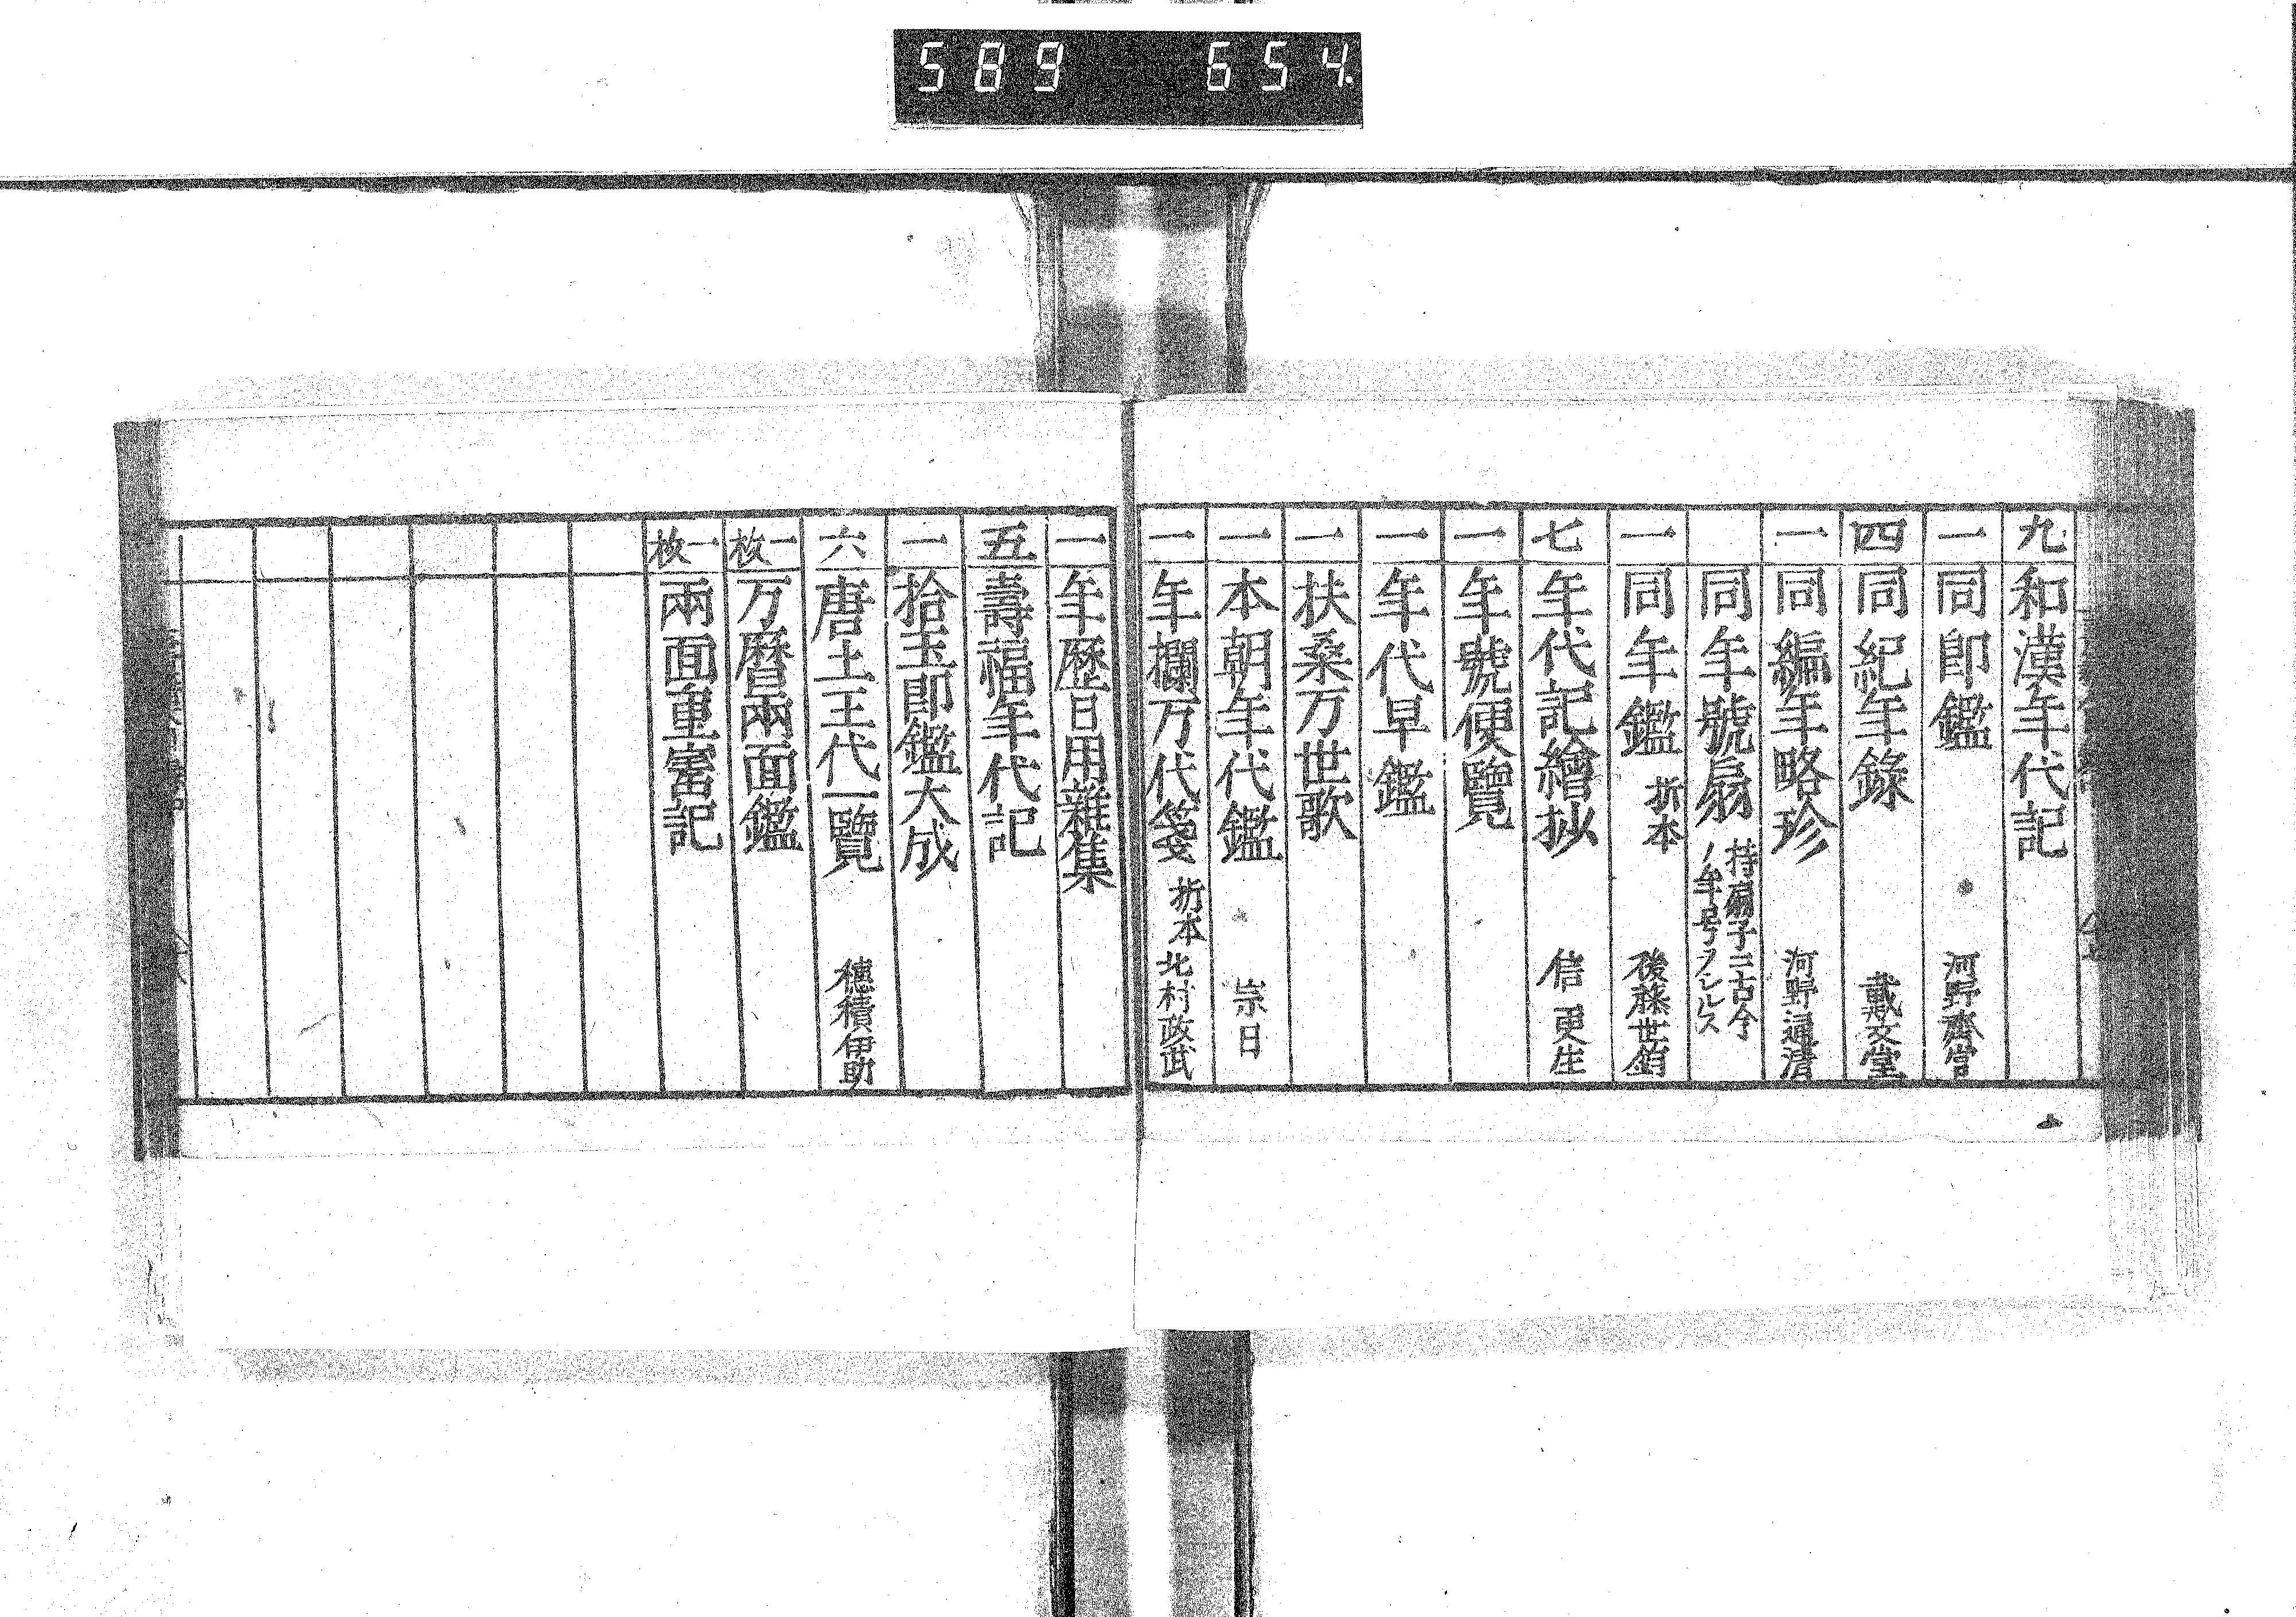 589 654
九 和漢年代記
一 同即鑑 河野齋宮
四 同紀年錄 戴文堂
一 同編年略珍 河野通清
同年號扇 持扇子ニ古今ノ年号ヲシルス
一 同年鑑 折本 後藤世鈞
七 年代記繪抄 信更生
一 年號便覽
一 年代早鑑
一 扶桑万世歌
一 本朝年代鑑 宗日
一 年欄万代箋 折本 北村政武
一 年歷日用雜集
五 壽福年代記
一 拾玉即鑑大成
六 唐土王代一覽 穗積伊助
一枚 万曆兩面鑑
一枚 兩面重寳記